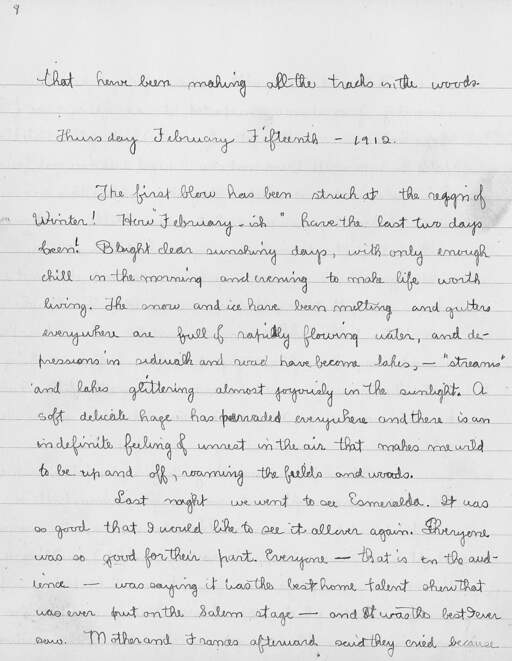 9
that have been making all the tracks in the woods.
Thursday February Fifteenth - 1912.
The first blow has been struck at the reign of
Winter! How "February-ish" have the last two days
been! Bright clear sunshiny days, with only enough
chill in the morning and evening to make life worth
living. The snow and ice have been melting and gutters
everywhere are full of rapidly flowing water, and de-
pressions in sidewalk and road have become lakes, — "streams"
and lakes glittering almost joyously in the sunlight. A
soft delicate haze has pervaded everywhere and there is an
indefinite feeling of unrest in the air that makes me wild
to be up and off, roaming the fields and woods.
Last night we went to see Esmeralda. It was
so good that I would like to see it all over again. Everyone
was so good for their part. Everyone — that is in the aud-
ience — was saying it was the best home talent show that
was ever put on the Salem stage — and it was the best I ever
saw. Mother and Frances afterward said they cried because